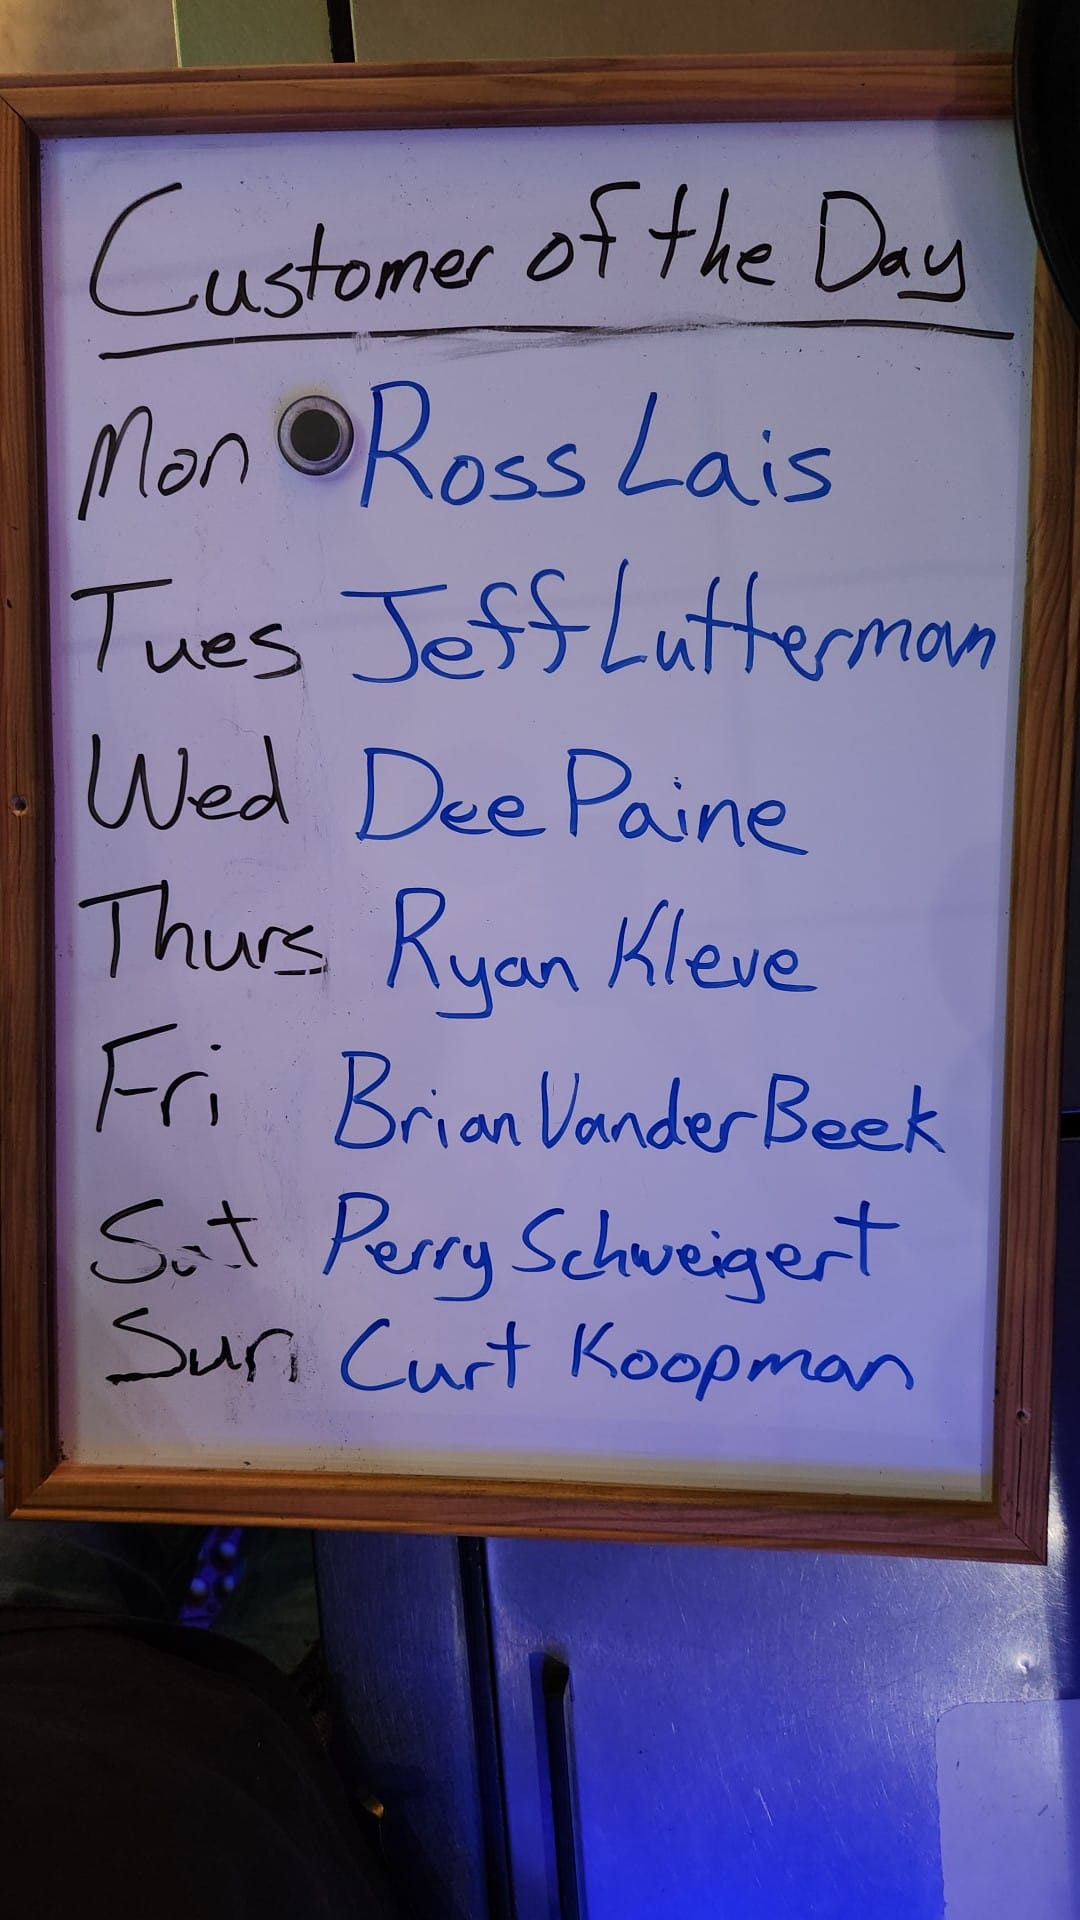 Customer of the Day
Mon Ross Lais
Tues Jeff Lutterman
Wed Dee Paine
Thurs Ryan Kleve
Fri Brian VanderBeek
Sat Perry Schweigert
Sun Curt Koopman